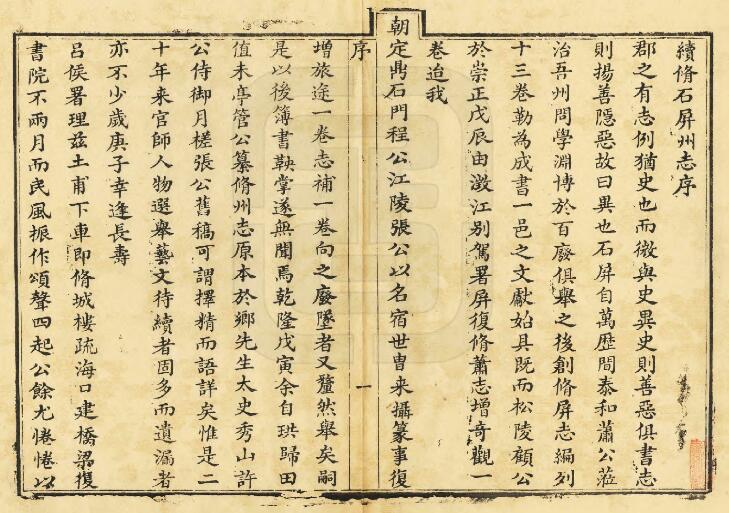 續脩石屏州志序
郡之有志例猶史也而微與史異史則善惡俱書志
則揚善隱惡故曰異也石屏自萬歷間泰和蕭公蒞
治吾州問學淵博於百廢俱舉之後創脩屏志編列
十三巻勒為成書一邑之文獻始具既而松陵顧公
於崇正戊辰由澂江别駕署屏復脩蕭志增奇觀一
巻迨我
朝定鼎石門程公江陵張公以名宿世胄来攝篆事復
序
一
增旅途一巻志補一巻向之廢墜者又釐然舉矣嗣
是以後簿書鞅掌遂無聞焉乾隆戊寅余自珙歸田
值未亭管公纂脩州志原本於鄉先生太史秀山許
公侍御月槎張公舊稿可謂擇精而語詳矣惟是二
十年来官師人物選舉藝文待續者固多而遺漏者
亦不少歲庚子幸逢長壽
吕侯署理兹土甫下車即脩城樓疏海口建橋梁復
書院不兩月而民風振作頌聲四起公餘尤惓惓以